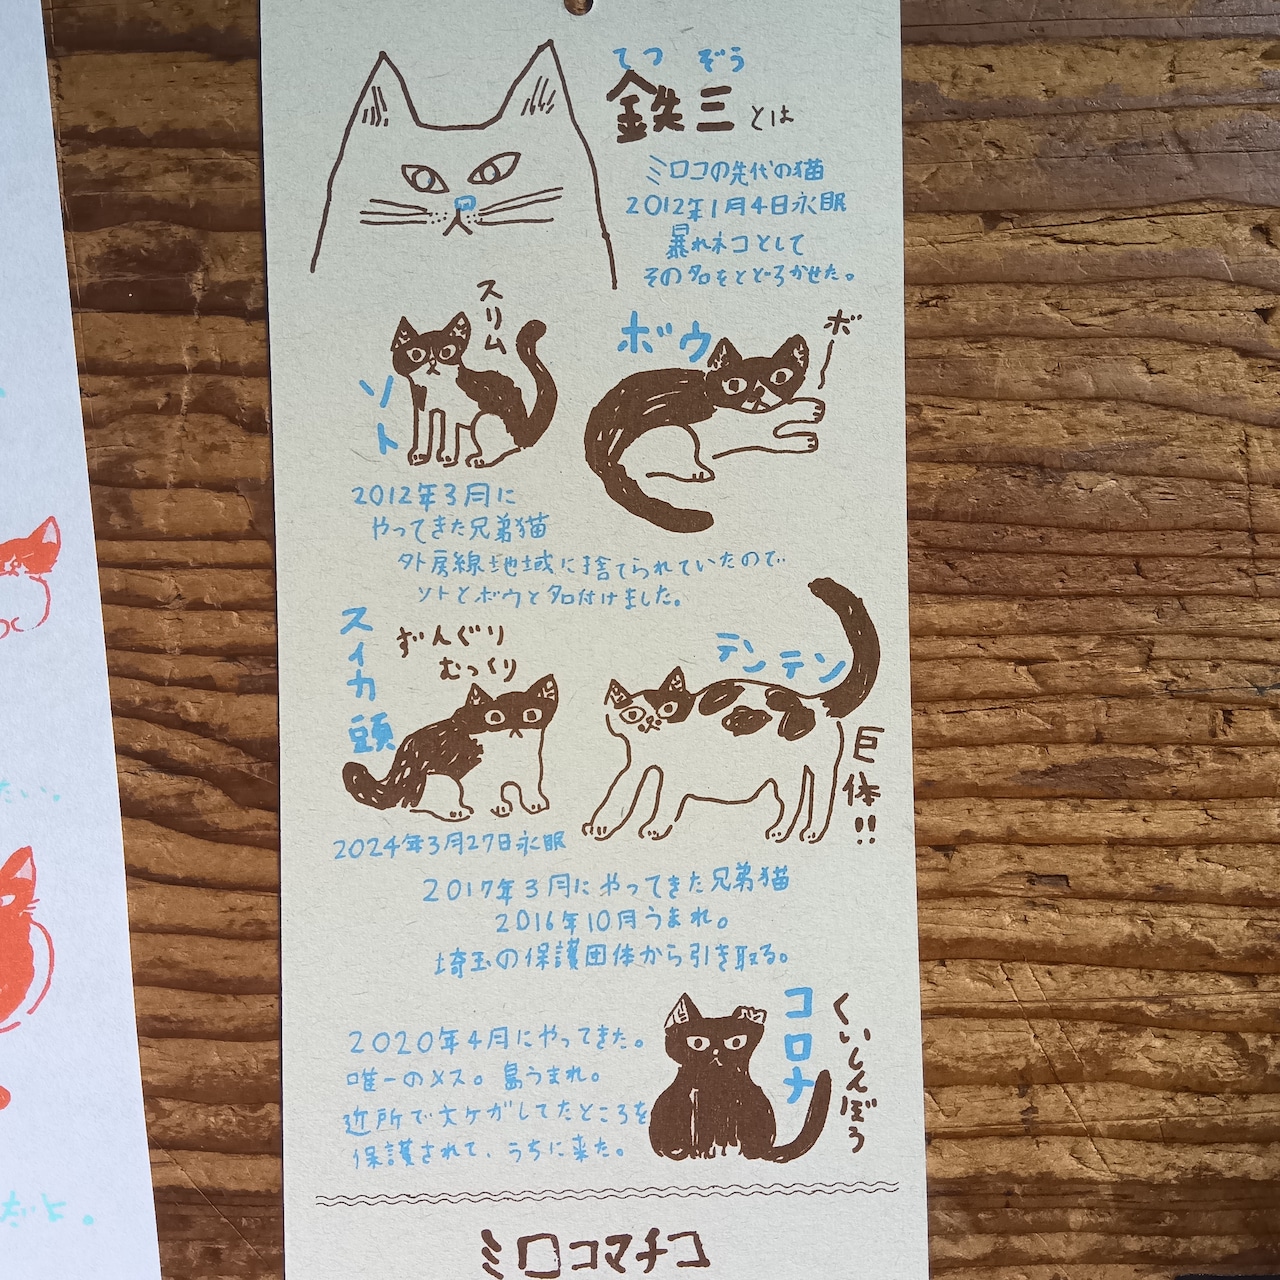 てつぞう
鉄三とは
ミロコの先代の猫
2012年1月4日永眠
暴れネコとして
その名をとどろかせた。
スリム
ソト
ボウ
ボー
2012年3月に
やってきた兄弟猫
外房線地域に捨てられていたので
ソトとボウと名付けました。
スイカ頭
ずんぐり
むっくり
テンテン
巨体!!
2024年3月27日永眠
2017年3月にやってきた兄弟猫
2016年10月うまれ。
埼玉の保護団体から引き取る。
コロナ
くいしんぼう
2020年4月にやってきた。
唯一のメス。島うまれ。
近所で大ケガしてたところを
保護されて、うちに来た。
ミロコマチコ
たい。